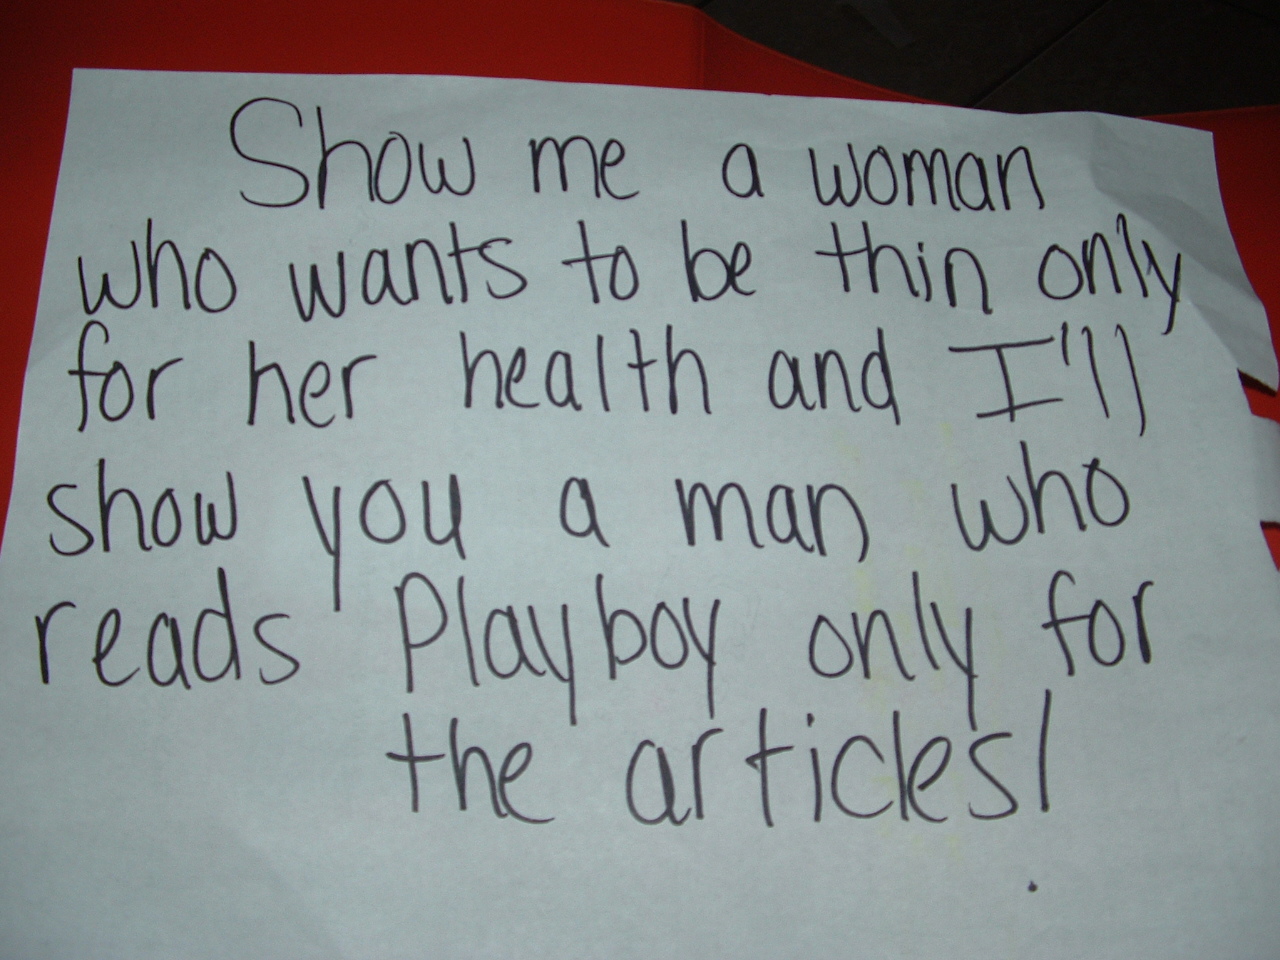 Show me a woman
who wants to be thin only
for her health and I'll
show you a man who
reads Playboy only for
the articles!